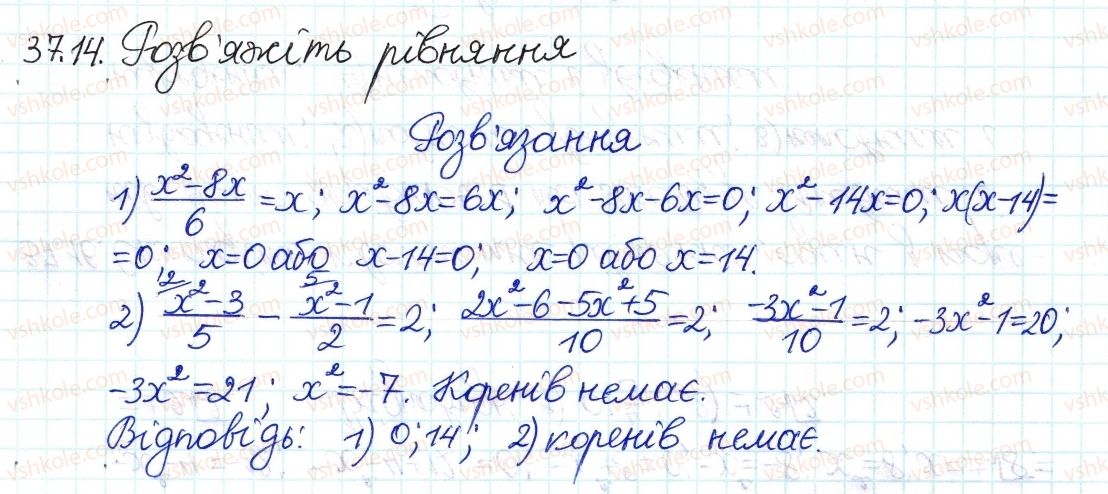 37.14. Розв'яжіть рівняння
Розв'язання
1) (x²-8x)/6 = x; x²-8x=6x; x²-8x-6x=0; x²-14x=0; x(x-14)=
=0; x=0 або x-14=0; x=0 або x=14.
2) ²⁾(x²-3)/5 - ⁵⁾(x²-1)/2 = 2; (2x²-6-5x²+5)/10 = 2; (-3x²-1)/10 = 2; -3x²-1=20;
-3x²=21; x²=-7. Коренів немає.
Відповідь: 1) 0; 14; 2) коренів немає.
vshkole.com